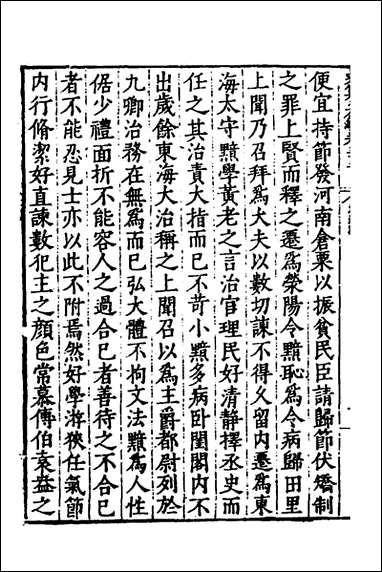 便宜持節發河南倉粟以振貧民臣請歸節伏矯制
之罪上賢而釋之遷爲滎陽令黯恥爲令病歸田里
上聞乃召拜爲大夫以數切諫不得久留內遷爲東
海太守黯學黃老之言治官理民好清靜擇丞史而
任之其治責大指而已不苛小黯多病臥閨閤內不
出歲餘東海大治稱之上聞召以爲主爵都尉列於
九卿治務在無爲而已弘大體不拘文法黯爲人性
倨少禮面折不能容人之過合已者善待之不合已
者不能忍見士亦以此不附焉然好學游俠任氣節
內行脩潔好直諫數犯主之顏色常慕傅伯袁益之